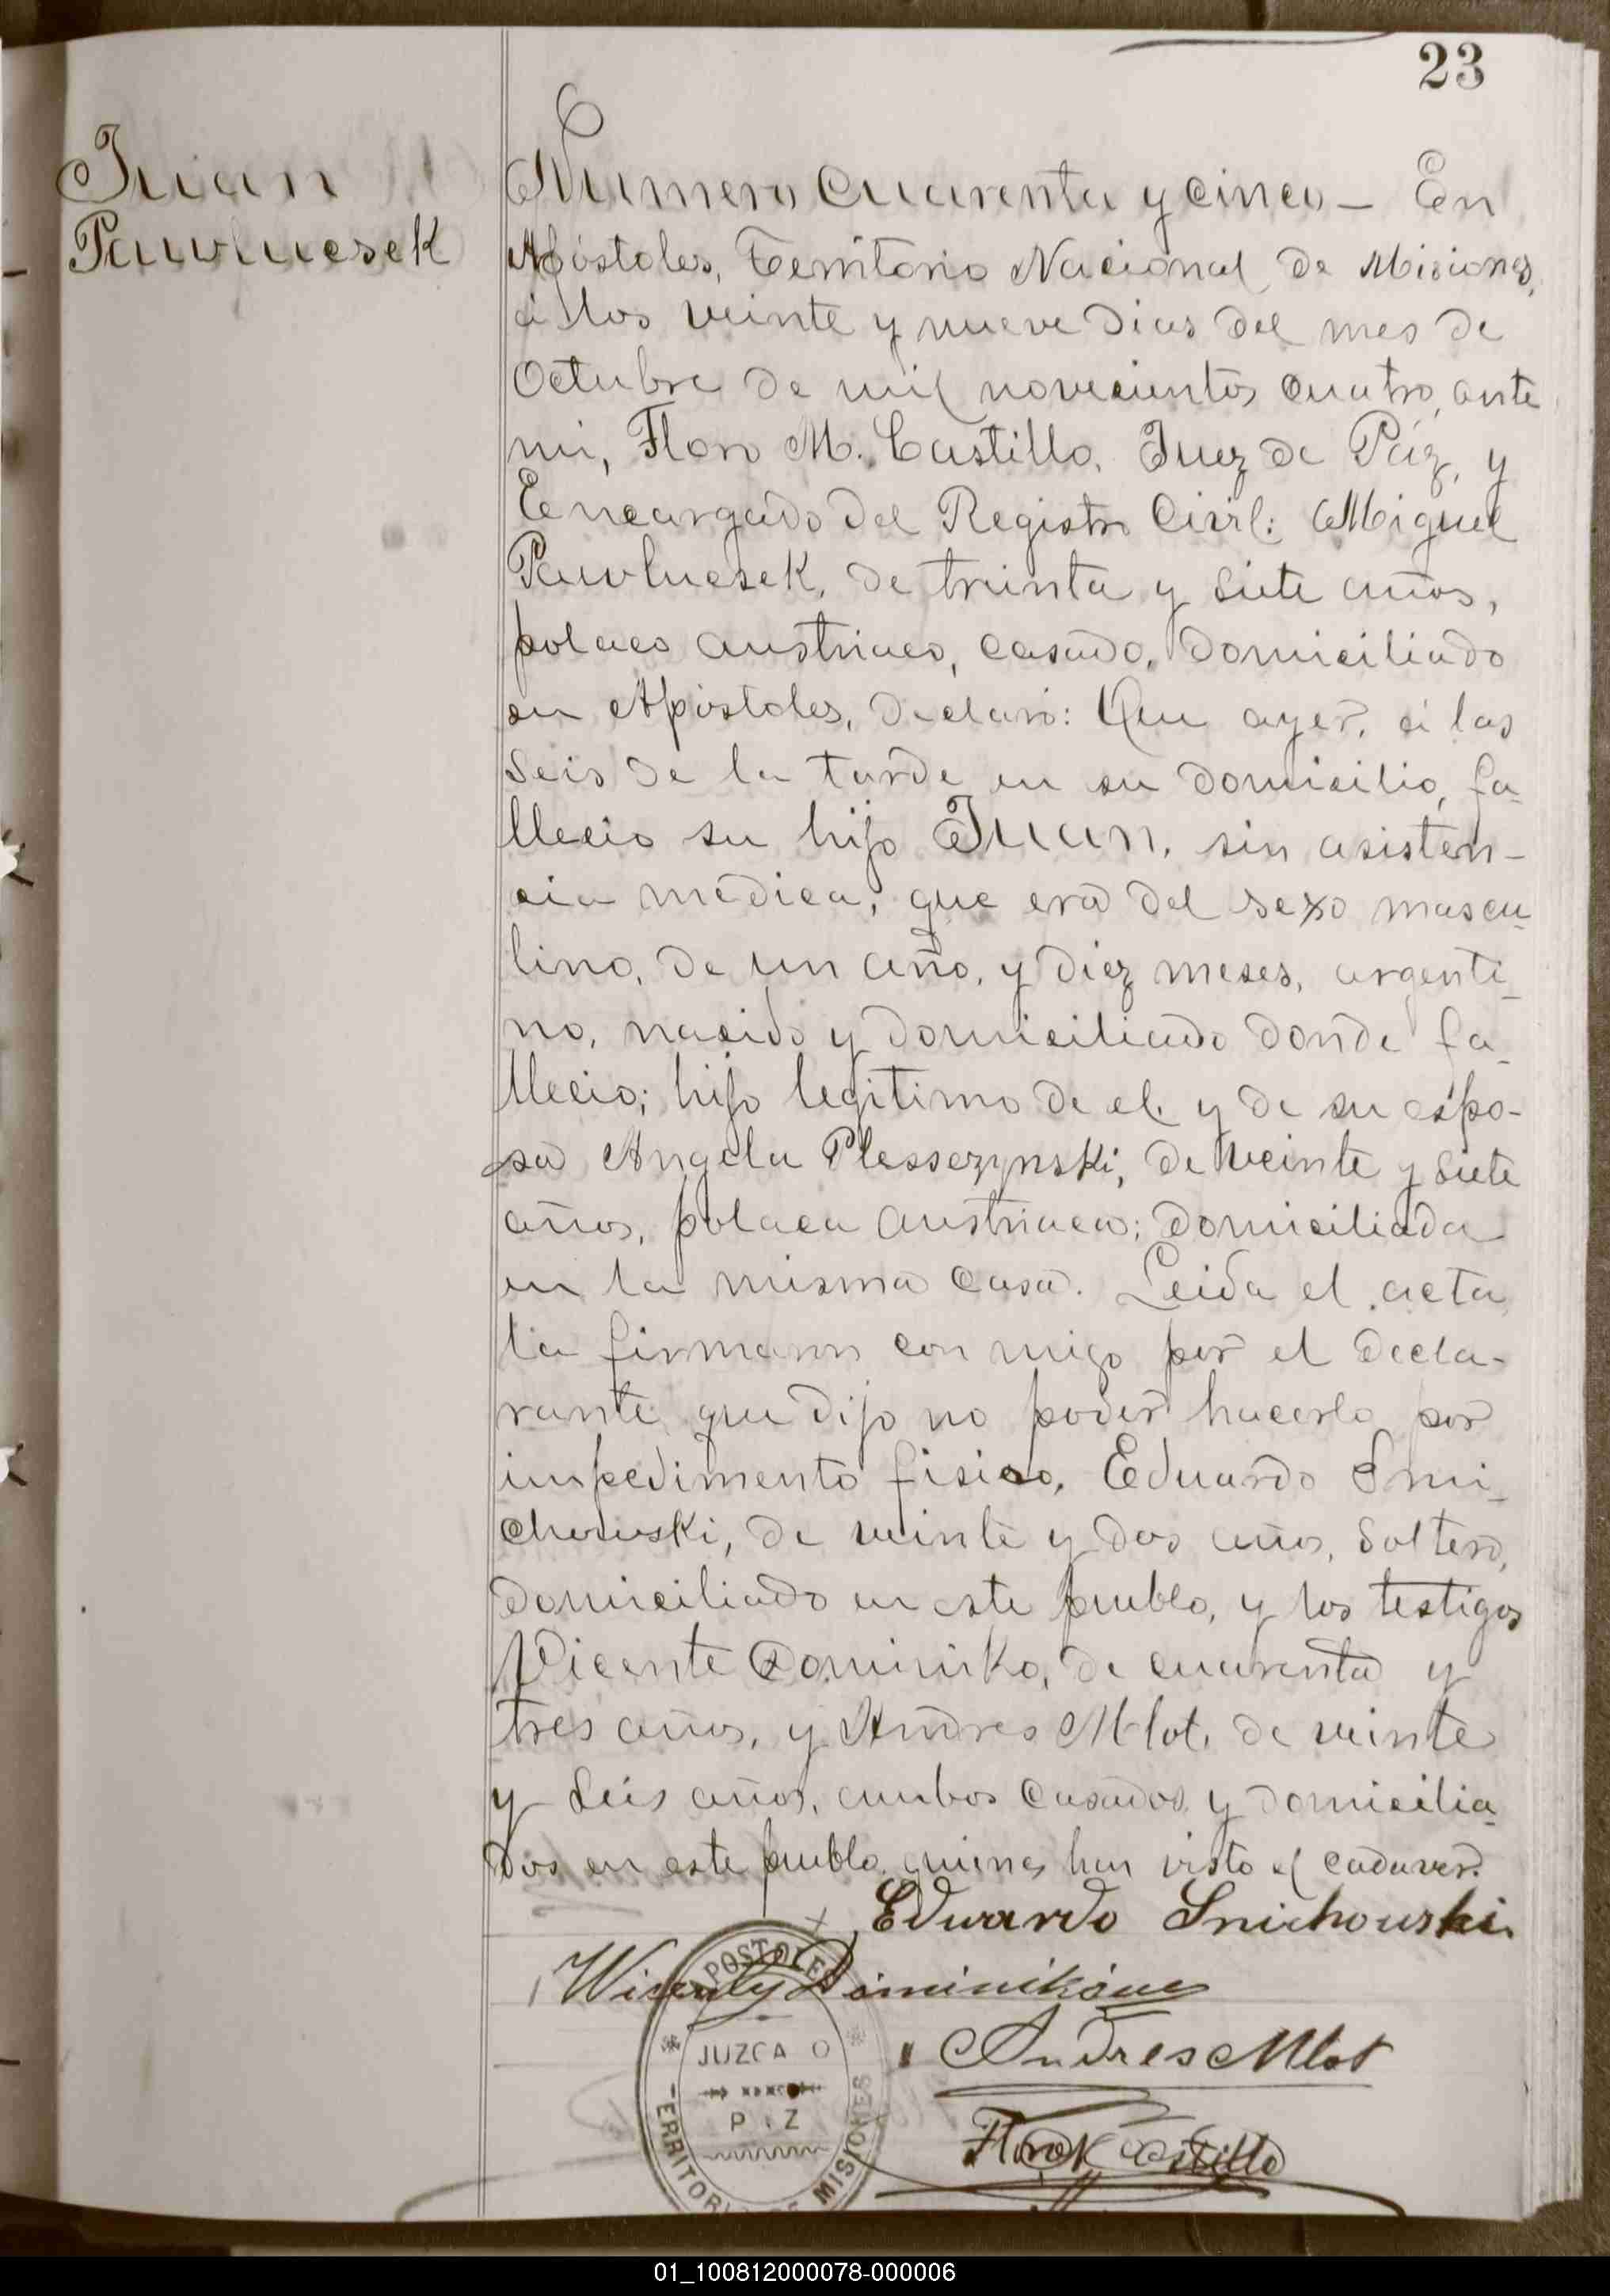 23
Juan
Pawluesek
Numero cuarenta y cinco – En
Apóstoles, Territorio Nacional de Misiones,
á los veinte y nueve dias del mes de
Octubre de mil novecientos cuatro, ante
mi, Floro M. Castillo, Juez de Páz, y
Encargado del Registro Civil: Miguel
Pawluesek, de treinta y siete años,
polaco austriaco, casado, domiciliado
en Apóstoles, declaró: Que ayer, á las
seis de la tarde en su domicilio, fa-
llecio su hijo Juan, sin asisten-
cia médica, que era del sexo mascu-
lino, de un año, y diez meses, argenti-
no, nacido y domiciliado donde fa-
llecio; hijo legitimo de el y de su espo-
sa Angela Plesserynski, de veinte y siete
años, polaca austriaca; domiciliada
en la misma casa. Leida el acta
la firmaron con migo por el decla-
rante que dijo no poder hacerlo por
impedimento fisico, Eduardo Smi-
chowski, de veinte y dos años, soltero,
domiciliado en este pueblo, y los testigos
Vicente Dominiko, de cuarenta y
tres años, y Andres Mlot, de veinte
y seis años, ambos casados y domicilia-
dos en este pueblo quienes han visto el cadaver.
Eduardo Smichowski
Dominików
Andres Mlot
Floro M Castillo
APOSTOLES
JUZGA O
P Z
ERRITORI MISIONES
01_100812000078-000006